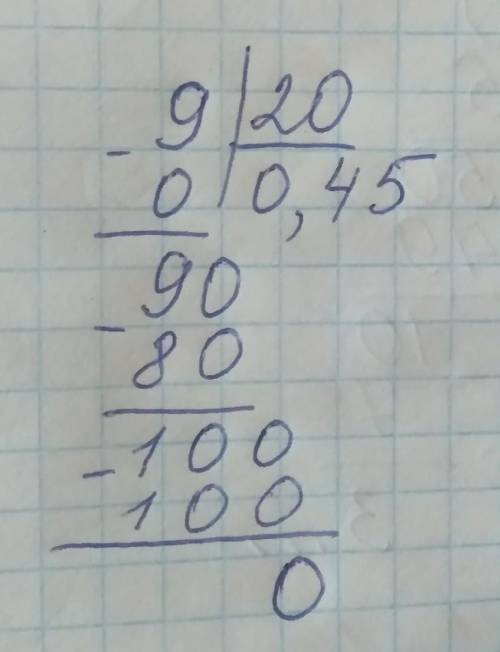 9 | 20
- 0 | 0,45
90
- 80
- 100
100
0